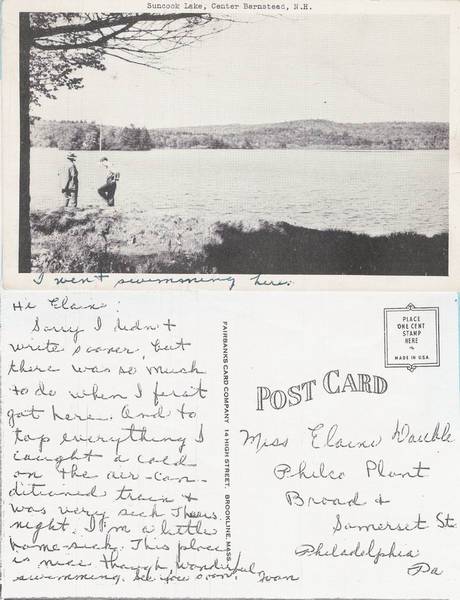 Suncook Lake, Center Barnstead, N.H.
I went swimming here.
Hi Elaine!
Sorry I didn't
write sooner, but
there was so much
to do when I first
got here. And to
top everything I
caught a cold
on the air-con-
ditioned train &
was very sick Thurs.
night. I'm a little
home-sick. This place
is nice though, wonderful
swimming. See you soon, Joan
FAIRBANKS CARD COMPANY 14 HIGH STREET, BROOKLINE, MASS.
PLACE
ONE CENT
STAMP
HERE
MADE IN U.S.A.
POST CARD
Miss Elaine
Philco Plant
Broad &
Somerset St.
Philadelphia
Pa